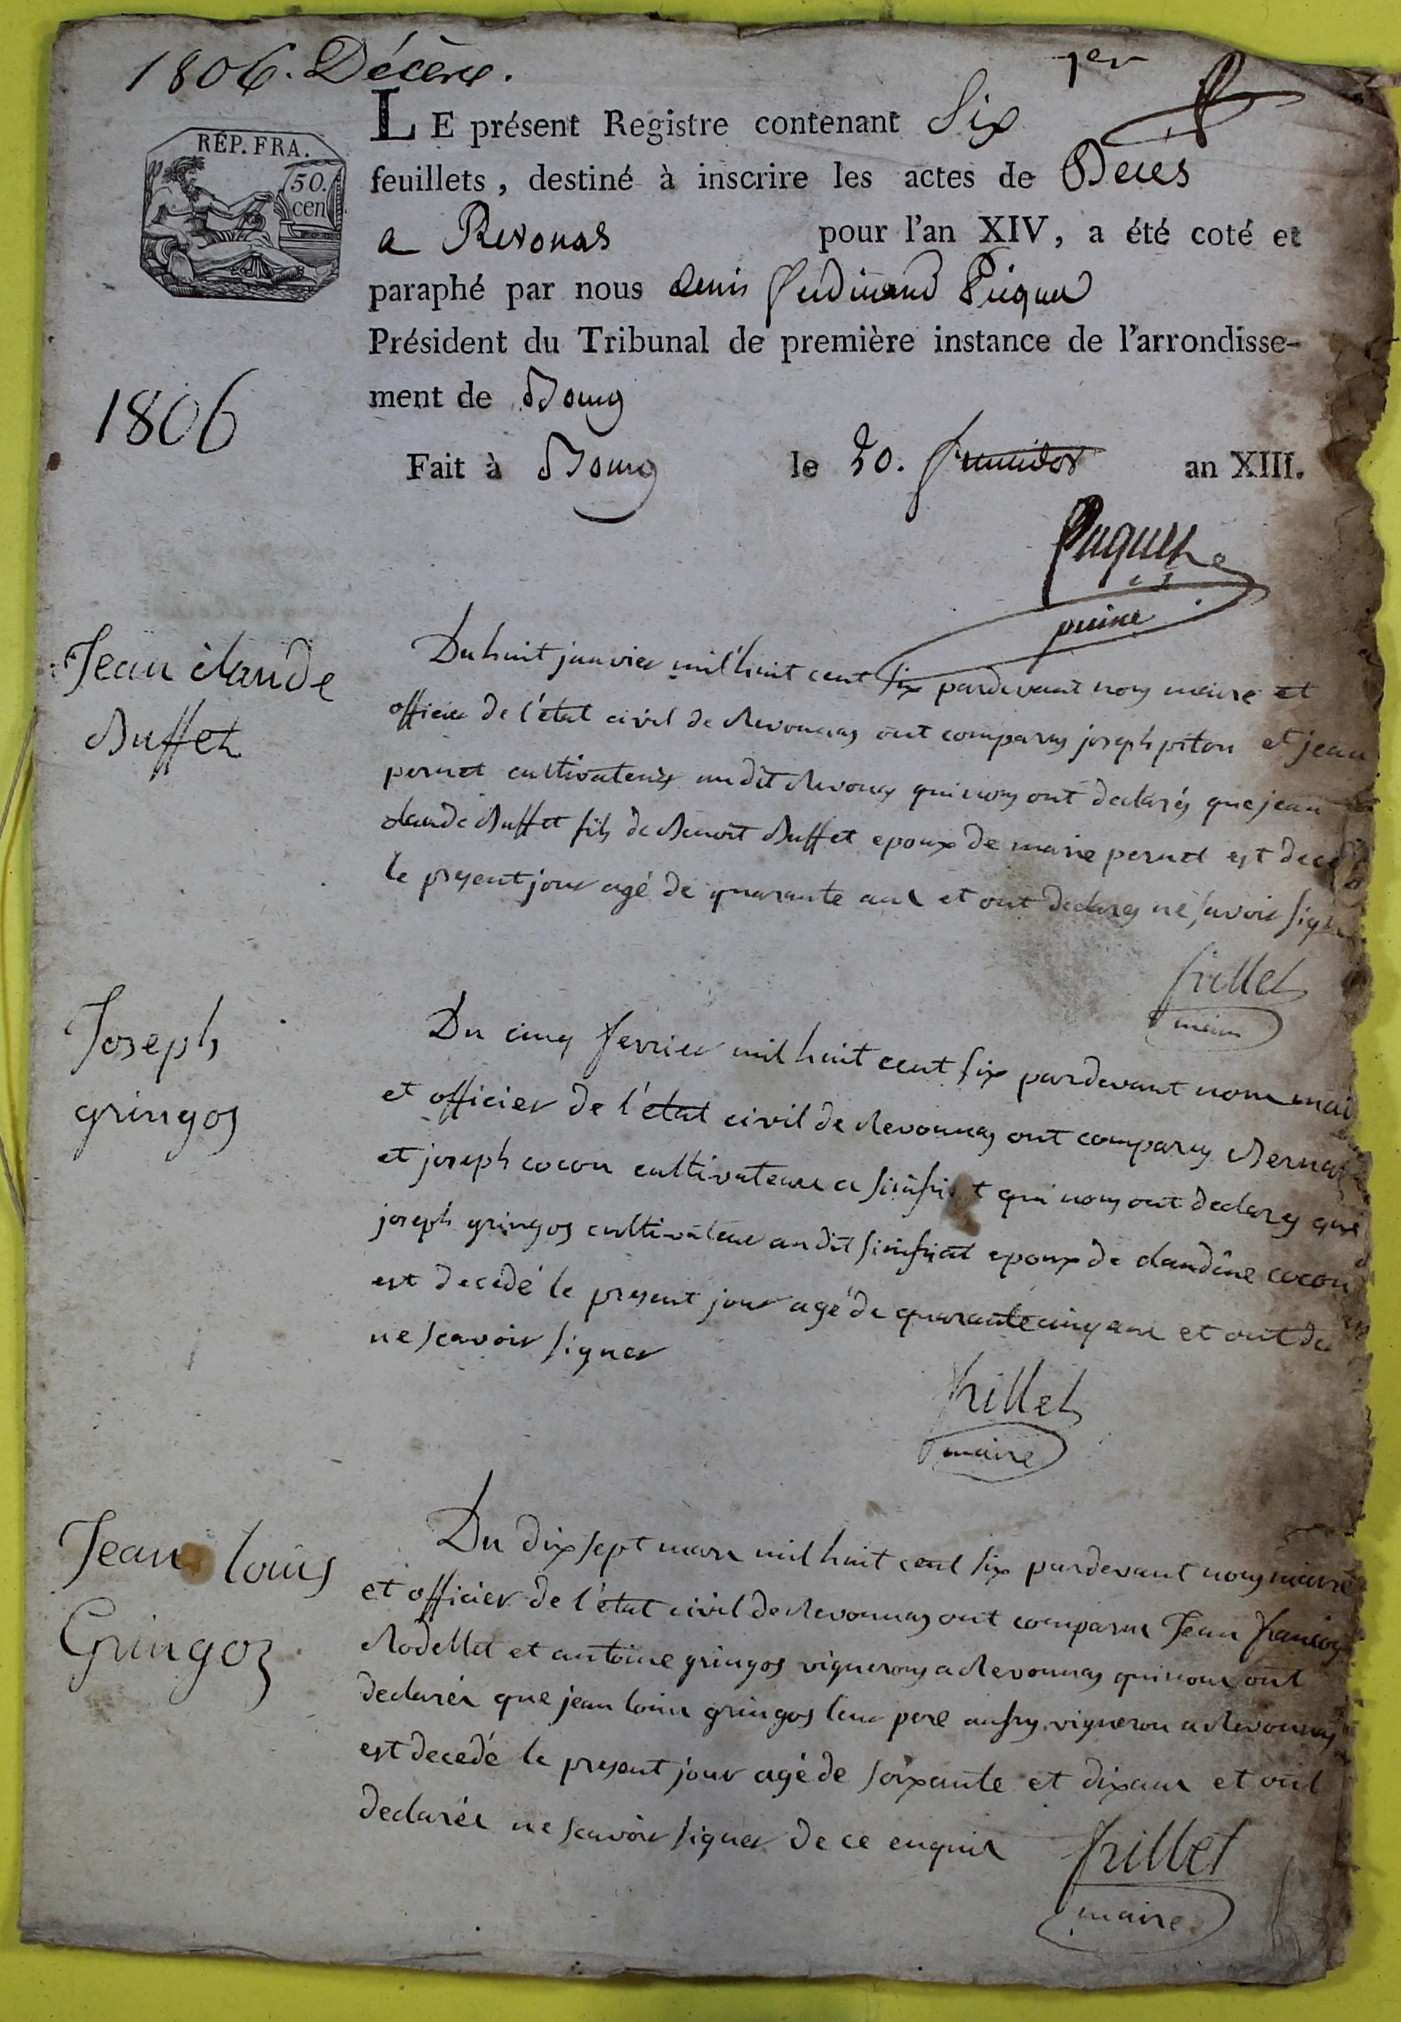 1806. Décès.
1er
RÉP. FRA.
50.
cen
LE présent Registre contenant Six
feuillets, destiné à inscrire les actes de Deces
a Revonas pour l'an XIV, a été coté et
paraphé par nous denis ferdinand Picquet
Président du Tribunal de première instance de l'arrondisse-
ment de Bourg
1806
Fait à Bourg le 20. fructidor an XIII.
Picquet
Jean claude
Buffet
Du huit janvier mil huit cent six pardevant nous maire et
officier de l'état civil de Revonnas ont comparus joseph piton et jean
pernet cultivateurs audit Revonas qui nous ont declarés que jean
claude Buffet fils de Benoit Buffet epoux de marie pernet est decedé
le present jour agé de quarante ans et ont declarés ne savoir signer
frillet
maire
Joseph
gringos
Du cinq fevrier mil huit cent six pardevant nous mai
et officier de l'état civil de Revonnas ont comparus
et joseph cocon cultivateurs a simfriat qui nous ont declarés que
joseph gringos cultivateur audit simfriat epoux de claudine cocon
est decedé le present jour agé de quarante cinq ans et ont de
ne scavoir signer
frillet
maire
Jean louis
Gringoz
Du dix sept mars mil huit cent six pardevant nous maire
et officier de l'état civil de Revonnas ont comparus Jean françois
Rodellet et antoine gringos vignerons a Revonnas qui nous ont
declarés que jean louis gringos leur pere aussy vigneron a Revonnas
est decedé le present jour agé de soixante et dix ans et ont
declarés ne scavoir signer de ce enquis
frillet
maire